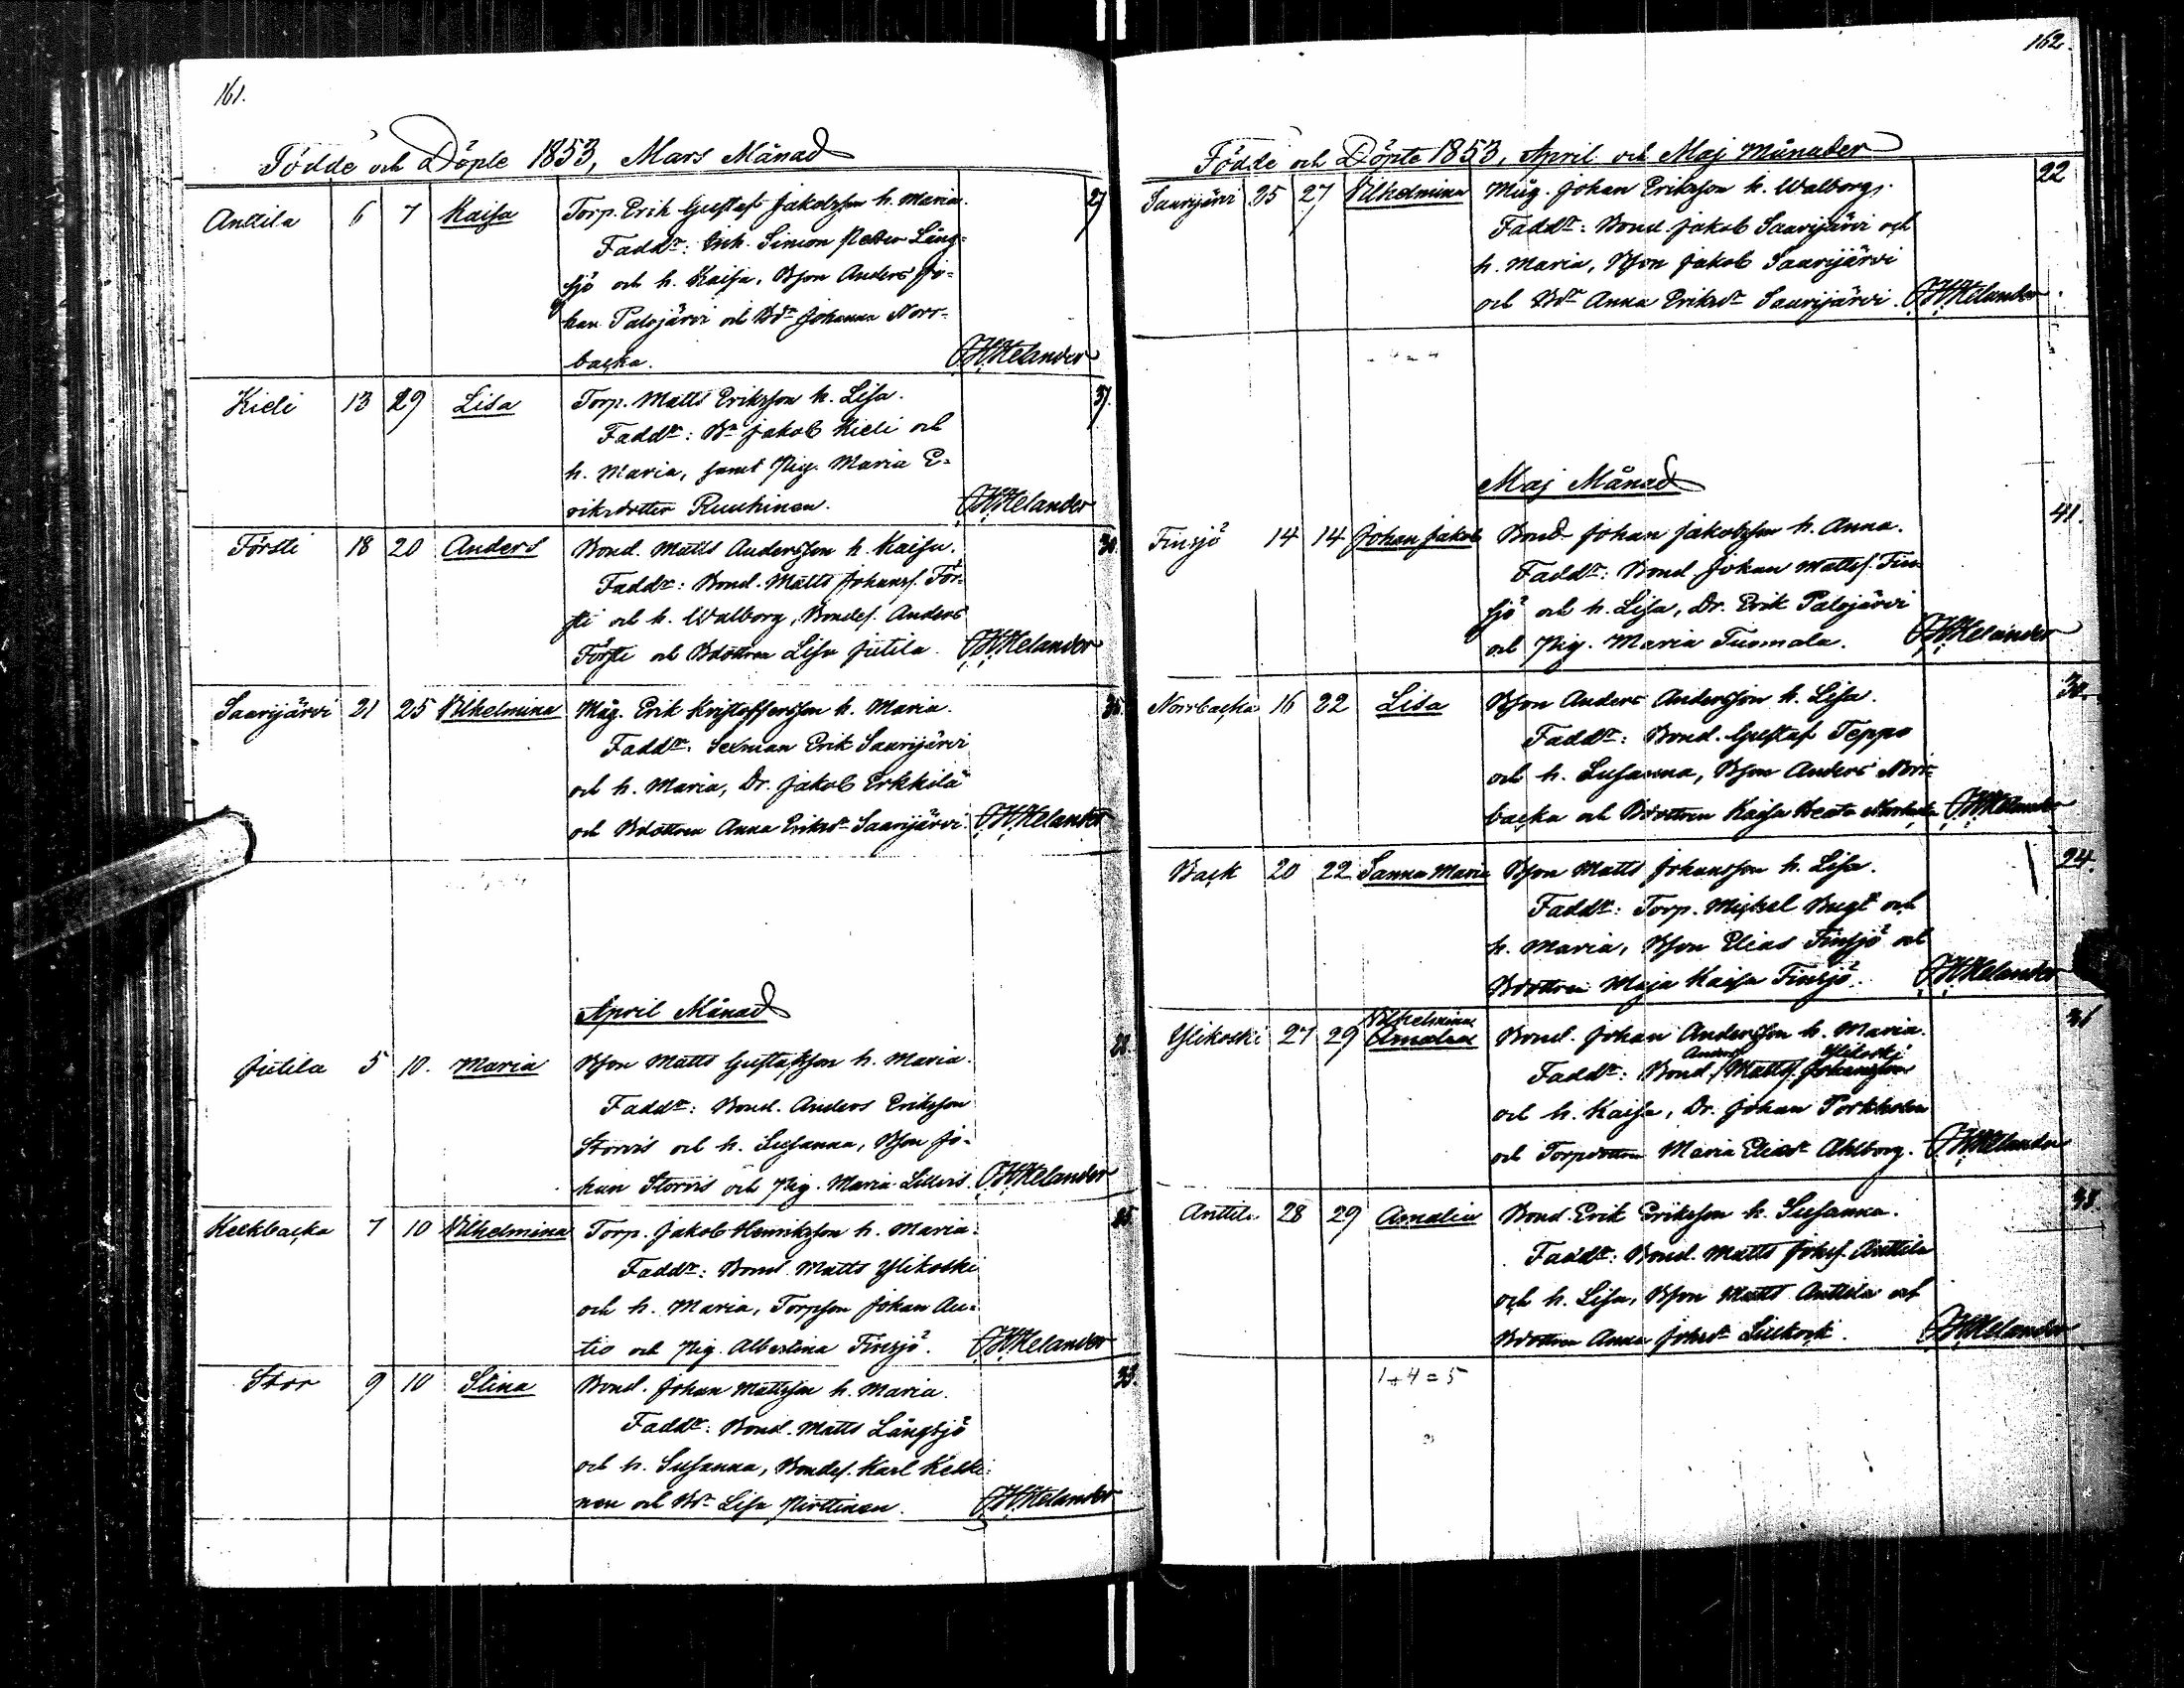 161.
Födde och Döpte 1853, Mars Månad
Anttila 6 7 Kaisa Torp. Erik Gustaf Jakobsson h. Maria. 27
Faddr: Inh. Simon Petter Lång-
sjö och h. Kaisa, Bson Anders Jo-
han Palojärvi och Bdr Johanna Norr-
backa. Helander
Kieli 13 29 Lisa Torp. Matts Eriksson h. Lisa. 37.
Faddr: Bn Jakob Kieli och
h. Maria, samt Pig. Maria E-
riksdotter Ruuhinen. Helander
Försti 18 20 Anders Bond. Matts Andersson h. Kaisa. 30.
Faddr: Bond. Matts Johanss. För-
sti och h. Walborg, Bondes. Anders
Försti och Bdottren Lisa Jutila. Helander
Saarijärvi 21 25 Vilhelmina Måg. Erik Kristoffersson h. Maria. 35.
Faddr: Sexman Erik Saarijärvi
och h. Maria, Dr. Jakob Erkkilä
och Bdottren Anna Eriksdr Saarijärvi. Helander
April Månad
Jutila 5 10. Maria Bson Matts Gustafsson h. Maria.
Faddr: Bond. Anders Eriksson
Storvis och h. Susanna, Bson Jo-
han Storvis och Pig. Maria Lillvis. Helander
Keckbacka 7 10 Vilhelmina Torp. Jakob Henriksson h. Maria.
Faddr: Bond. Matts Ylikoski
och h. Maria, Torpson Johan Au-
tio och Pig. Albertina Finsjö. Helander
Stor 9 10 Stina Bond. Johan Mattsson h. Maria. 33.
Faddr: Bond. Matts Långsjö
och h. Susanna, Bondes. Karl Keski-
nen och Bdr Lisa Pirttinen. Helander
162.
Födde och Döpte 1853, April och Maj Månader
Saarijärvi 25 27 Vilhelmina Måg. Johan Eriksson h. Walborg. 22
Faddr: Bond. Jakob Saarijärvi och
h. Maria, Bson Jakob Saarijärvi
och Bdr Anna Eriksdr Saarijärvi. Helander
Maj Månad
Finsjö 14 14 Johan Jakob Bond. Johan Jakobsson h. Anna. 41.
Faddr: Bond. Johan Mattss. Fin-
sjö och h. Lisa, Dr. Erik Palojärvi
och Pig. Maria Tuomala. Helander
Norrbacka 16 22 Lisa Bson Anders Andersson h. Lisa. 30.
Faddr: Bond. Gustaf Teppo
och h. Susanna, Bson Anders Norr-
backa och Bdottren Kaisa Beata Norrbacka Helander
Back 20 22 Sanna Maria Bson Matts Johansson h. Lisa. 24.
Faddr: Torp. Mickel Bugt och
h. Maria, Bson Elias Finsjö och
Bdottren Maja Kaisa Finsjö. Helander
Vilhelmina
Ylikoski 27 29 Amalia Bond. Johan Andersson h. Maria. 31
Anders Ylikoski
Faddr: Bond. Mattss. Johansson
och h. Kaisa, Dr. Johan Porkholm
och Torpdottren Maria Eliasdr Ahlborg. Helander
Anttila 28 29 Amalia Bond. Erik Eriksson h. Susanna.
Faddr: Bond. Matts Johss. Anttila
och h. Lisa, Bson Matts Anttila och
Bdottren Anna Johsdr Lillkock. Helander
1+4=5